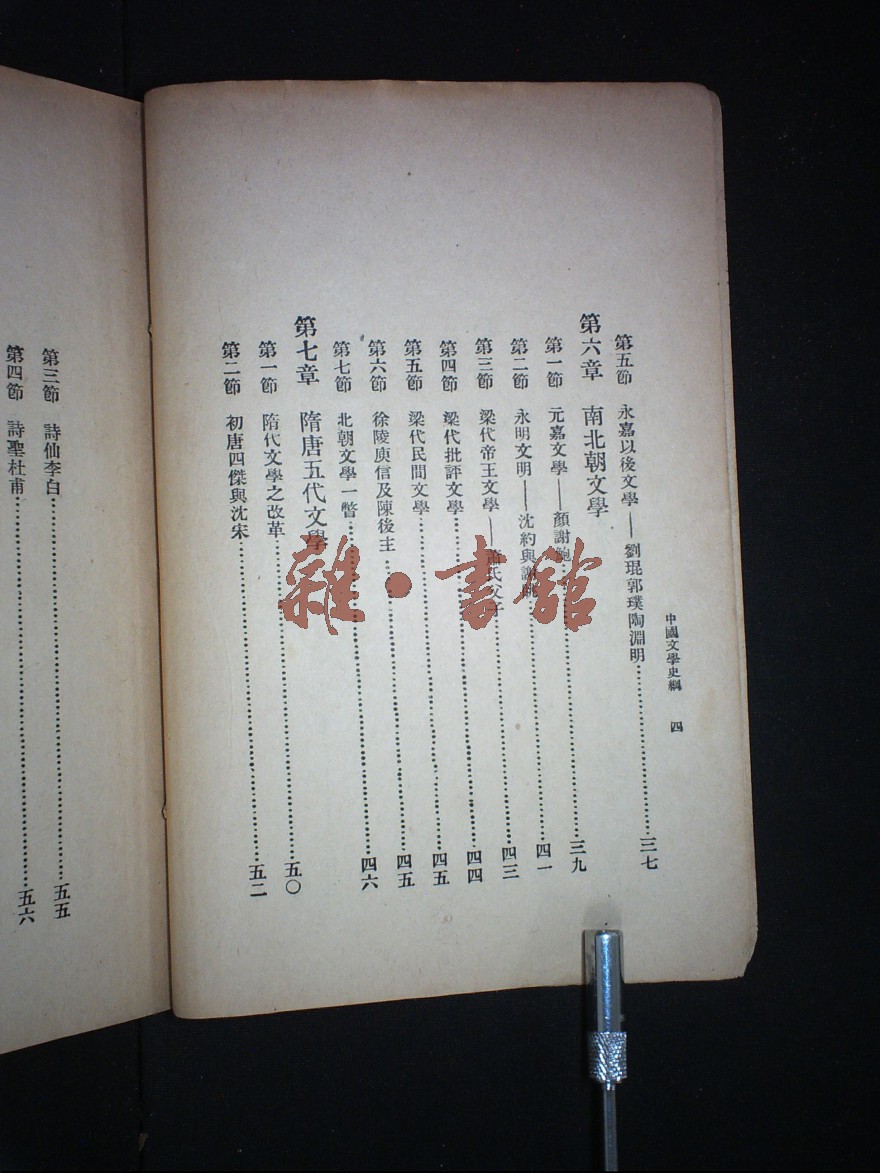 中國文學史綱 四
第五節 永嘉以後文學——劉琨郭璞陶淵明……三七
第六章 南北朝文學
第一節 元嘉文學——顏謝鮑……三九
第二節 永明文明——沈約與謝……四一
第三節 梁代帝王文學——蕭氏父子……四三
第四節 梁代批評文學……四四
第五節 梁代民間文學……四五
第六節 徐陵庾信及陳後主……四五
第七節 北朝文學一瞥……四六
第七章 隋唐五代文學
第一節 隋代文學之改革……五〇
第二節 初唐四傑與沈宋……五二
第三節 詩仙李白……五五
第四節 詩聖杜甫……五六
雜·書館